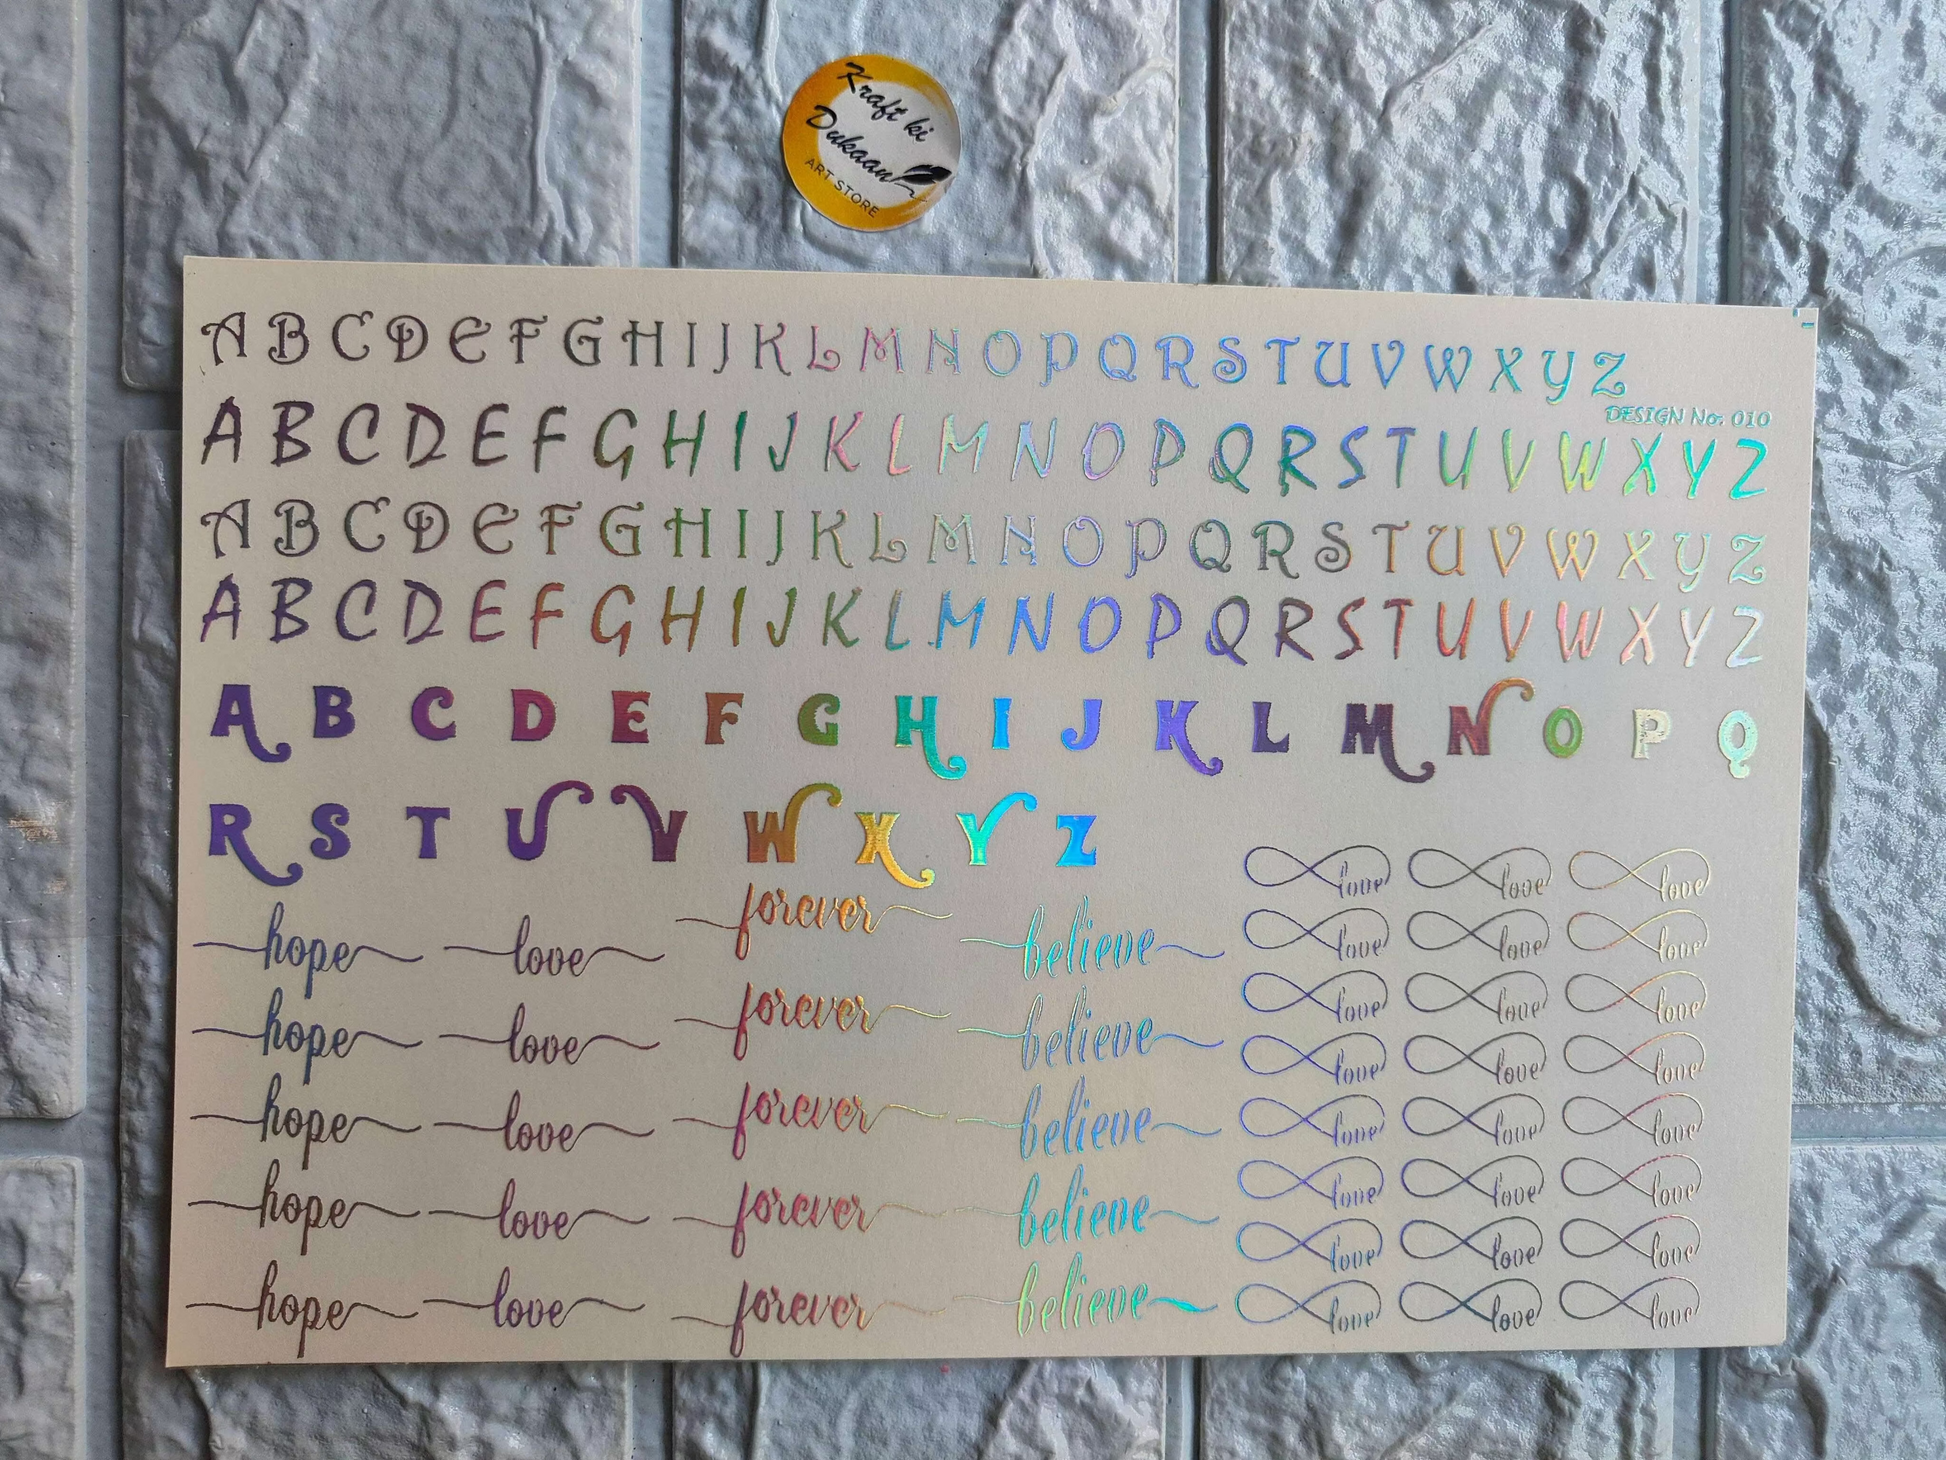 Kraft ki
Dukaan
ART STORE
A B C D E F G H I J K L M N O P Q R S T U V W X Y Z
DESIGN No: 010
A B C D E F G H I J K L M N O P Q R S T U V W X Y Z
A B C D E F G H I J K L M N O P Q R S T U V W X Y Z
A B C D E F G H I J K L M N O P Q R S T U V W X Y Z
A B C D E F G H I J K L M N O P Q
R S T U V W X Y Z
love love love
hope love forever believe love love love
love love love
hope love forever believe love love love
hope love forever believe love love love
hope love forever believe love love love
love love love
hope love forever believe love love love